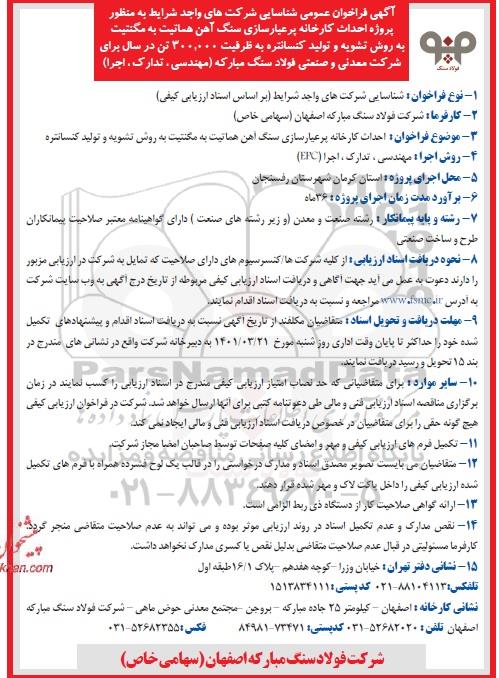 آگهی فراخوان عمومی شناسایی شرکت های واجد شرایط به منظور
پروژه احداث کارخانه پرعیارسازی سنگ آهن هماتیت به مگنتیت
به روش تشویه و تولید کنسانتره به ظرفیت ۳۰۰,۰۰۰ تن در سال برای
شرکت معدنی و صنعتی فولاد سنگ مبارکه (مهندسی ، تدارک ، اجرا)
فولاد سنگ
۱- نوع فراخوان : شناسایی شرکت های واجد شرایط (بر اساس اسناد ارزیابی کیفی)
۲- کارفرما : شرکت فولاد سنگ مبارکه اصفهان (سهامی خاص)
۳- موضوع فراخوان : احداث کارخانه پرعیارسازی سنگ آهن هماتیت به مگنتیت به روش تشویه و تولید کنسانتره
۴- روش اجرا : مهندسی ، تدارک ، اجرا (EPC)
۵- محل اجرای پروژه : استان کرمان شهرستان رفسنجان
۶- برآورد مدت زمان اجرای پروژه : ۳۶ماه
۷- رشته و پایه پیمانکار : رشته صنعت و معدن (و زیر رشته های صنعت ) دارای گواهینامه معتبر صلاحیت پیمانکاران
طرح و ساخت صنعتی
۸- نحوه دریافت اسناد ارزیابی : از کلیه شرکت ها/کنسرسیوم های دارای صلاحیت که تمایل به شرکت در ارزیابی مزبور
را دارند دعوت به عمل می آید جهت آگاهی و دریافت اسناد ارزیابی کیفی مربوطه از تاریخ درج آگهی به وب سایت شرکت
به آدرس www.fsmc.ir مراجعه و نسبت به دریافت اسناد اقدام نمایند.
۹- مهلت دریافت و تحویل اسناد : متقاضیان مکلفند از تاریخ آگهی نسبت به دریافت اسناد اقدام و پیشنهادهای تکمیل
شده خود را حداکثر تا پایان وقت اداری روز شنبه مورخ ۱۴۰۱/۰۳/۲۱ به دبیرخانه شرکت واقع در نشانی های مندرج در
بند ۱۵ تحویل و رسید دریافت نمایند.
۱۰- سایر موارد : برای متقاضیانی که حد نصاب امتیاز ارزیابی کیفی مندرج در اسناد ارزیابی را کسب نمایند در زمان
برگزاری مناقصه اسناد ارزیابی فنی و مالی طی دعوتنامه کتبی برای آنها ارسال خواهد شد. شرکت در فراخوان ارزیابی کیفی
هیچ گونه حقی را برای متقاضیان در خصوص دریافت اسناد ارزیابی فنی و مالی ایجاد نمی کند.
۱۱- تکمیل فرم های ارزیابی کیفی و مهر و امضای کلیه صفحات توسط صاحبان امضا مجاز شرکت.
۱۲- متقاضیان می بایست تصویر مصدق اسناد و مدارک درخواستی را در قالب یک لوح فشرده همراه با فرم های تکمیل
شده ارزیابی کیفی را داخل پاکت لاک و مهر شده قرار دهند.
۱۳- ارائه گواهی صلاحیت کار از دستگاه ذی ربط الزامی است.
۱۴- نقص مدارک و عدم تکمیل اسناد در روند ارزیابی موثر بوده و می تواند به عدم صلاحیت متقاضی منجر گردد.
کارفرما مسئولیتی در قبال عدم صلاحیت متقاضی بدلیل نقص یا کسری مدارک نخواهد داشت.
۱۵- نشانی دفتر تهران : خیابان وزرا –کوچه هفدهم –پلاک ۱۶/۱طبقه اول
تلفکس:۸۸۱۰۴۱۱۳-۰۲۱ کدپستی: ۱۵۱۳۸۳۴۱۱۱
نشانی کارخانه : اصفهان - کیلومتر ۲۵ جاده مبارکه - بروجن –مجتمع معدنی حوض ماهی – شرکت فولاد سنگ مبارکه
اصفهان تلفن : ۵۲۶۸۲۰۲۰-۰۳۱ کدپستی: ۷۳۴۷۱-۸۴۹۸۱ فکس: ۵۲۶۸۲۳۵۵-۰۳۱
شرکت فولاد سنگ مبارکه اصفهان (سهامی خاص)
ParsNamadData
پایگاه اطلاع رسانی مناقصه و مزایده
۰۲۱-۸۸۳۴۹۶۷۰-۵